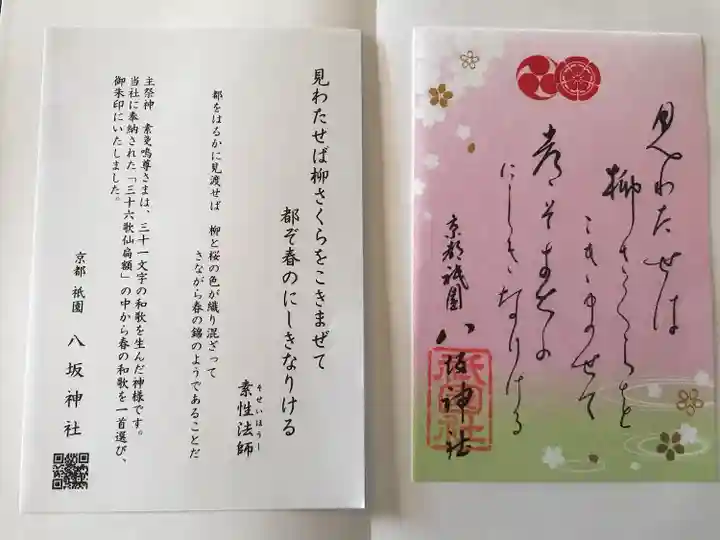 見わたせば柳さくらをこきまぜて
都ぞ春のにしきなりける
素性法師
そせいほうし
都をはるかに見渡せば 柳と桜の色が織り混ざって
さながら春の錦のようであることだ
主祭神 素戔嗚尊さまは、三十一文字の和歌を生んだ神様です。
当社に奉納された「三十六歌仙扁額」の中から春の和歌を一首選び、
御朱印にいたしました。
京都 祇園 八坂神社
見わたせは
柳さくらを
こきませて
にしきなりける
京都祇園
八坂神社